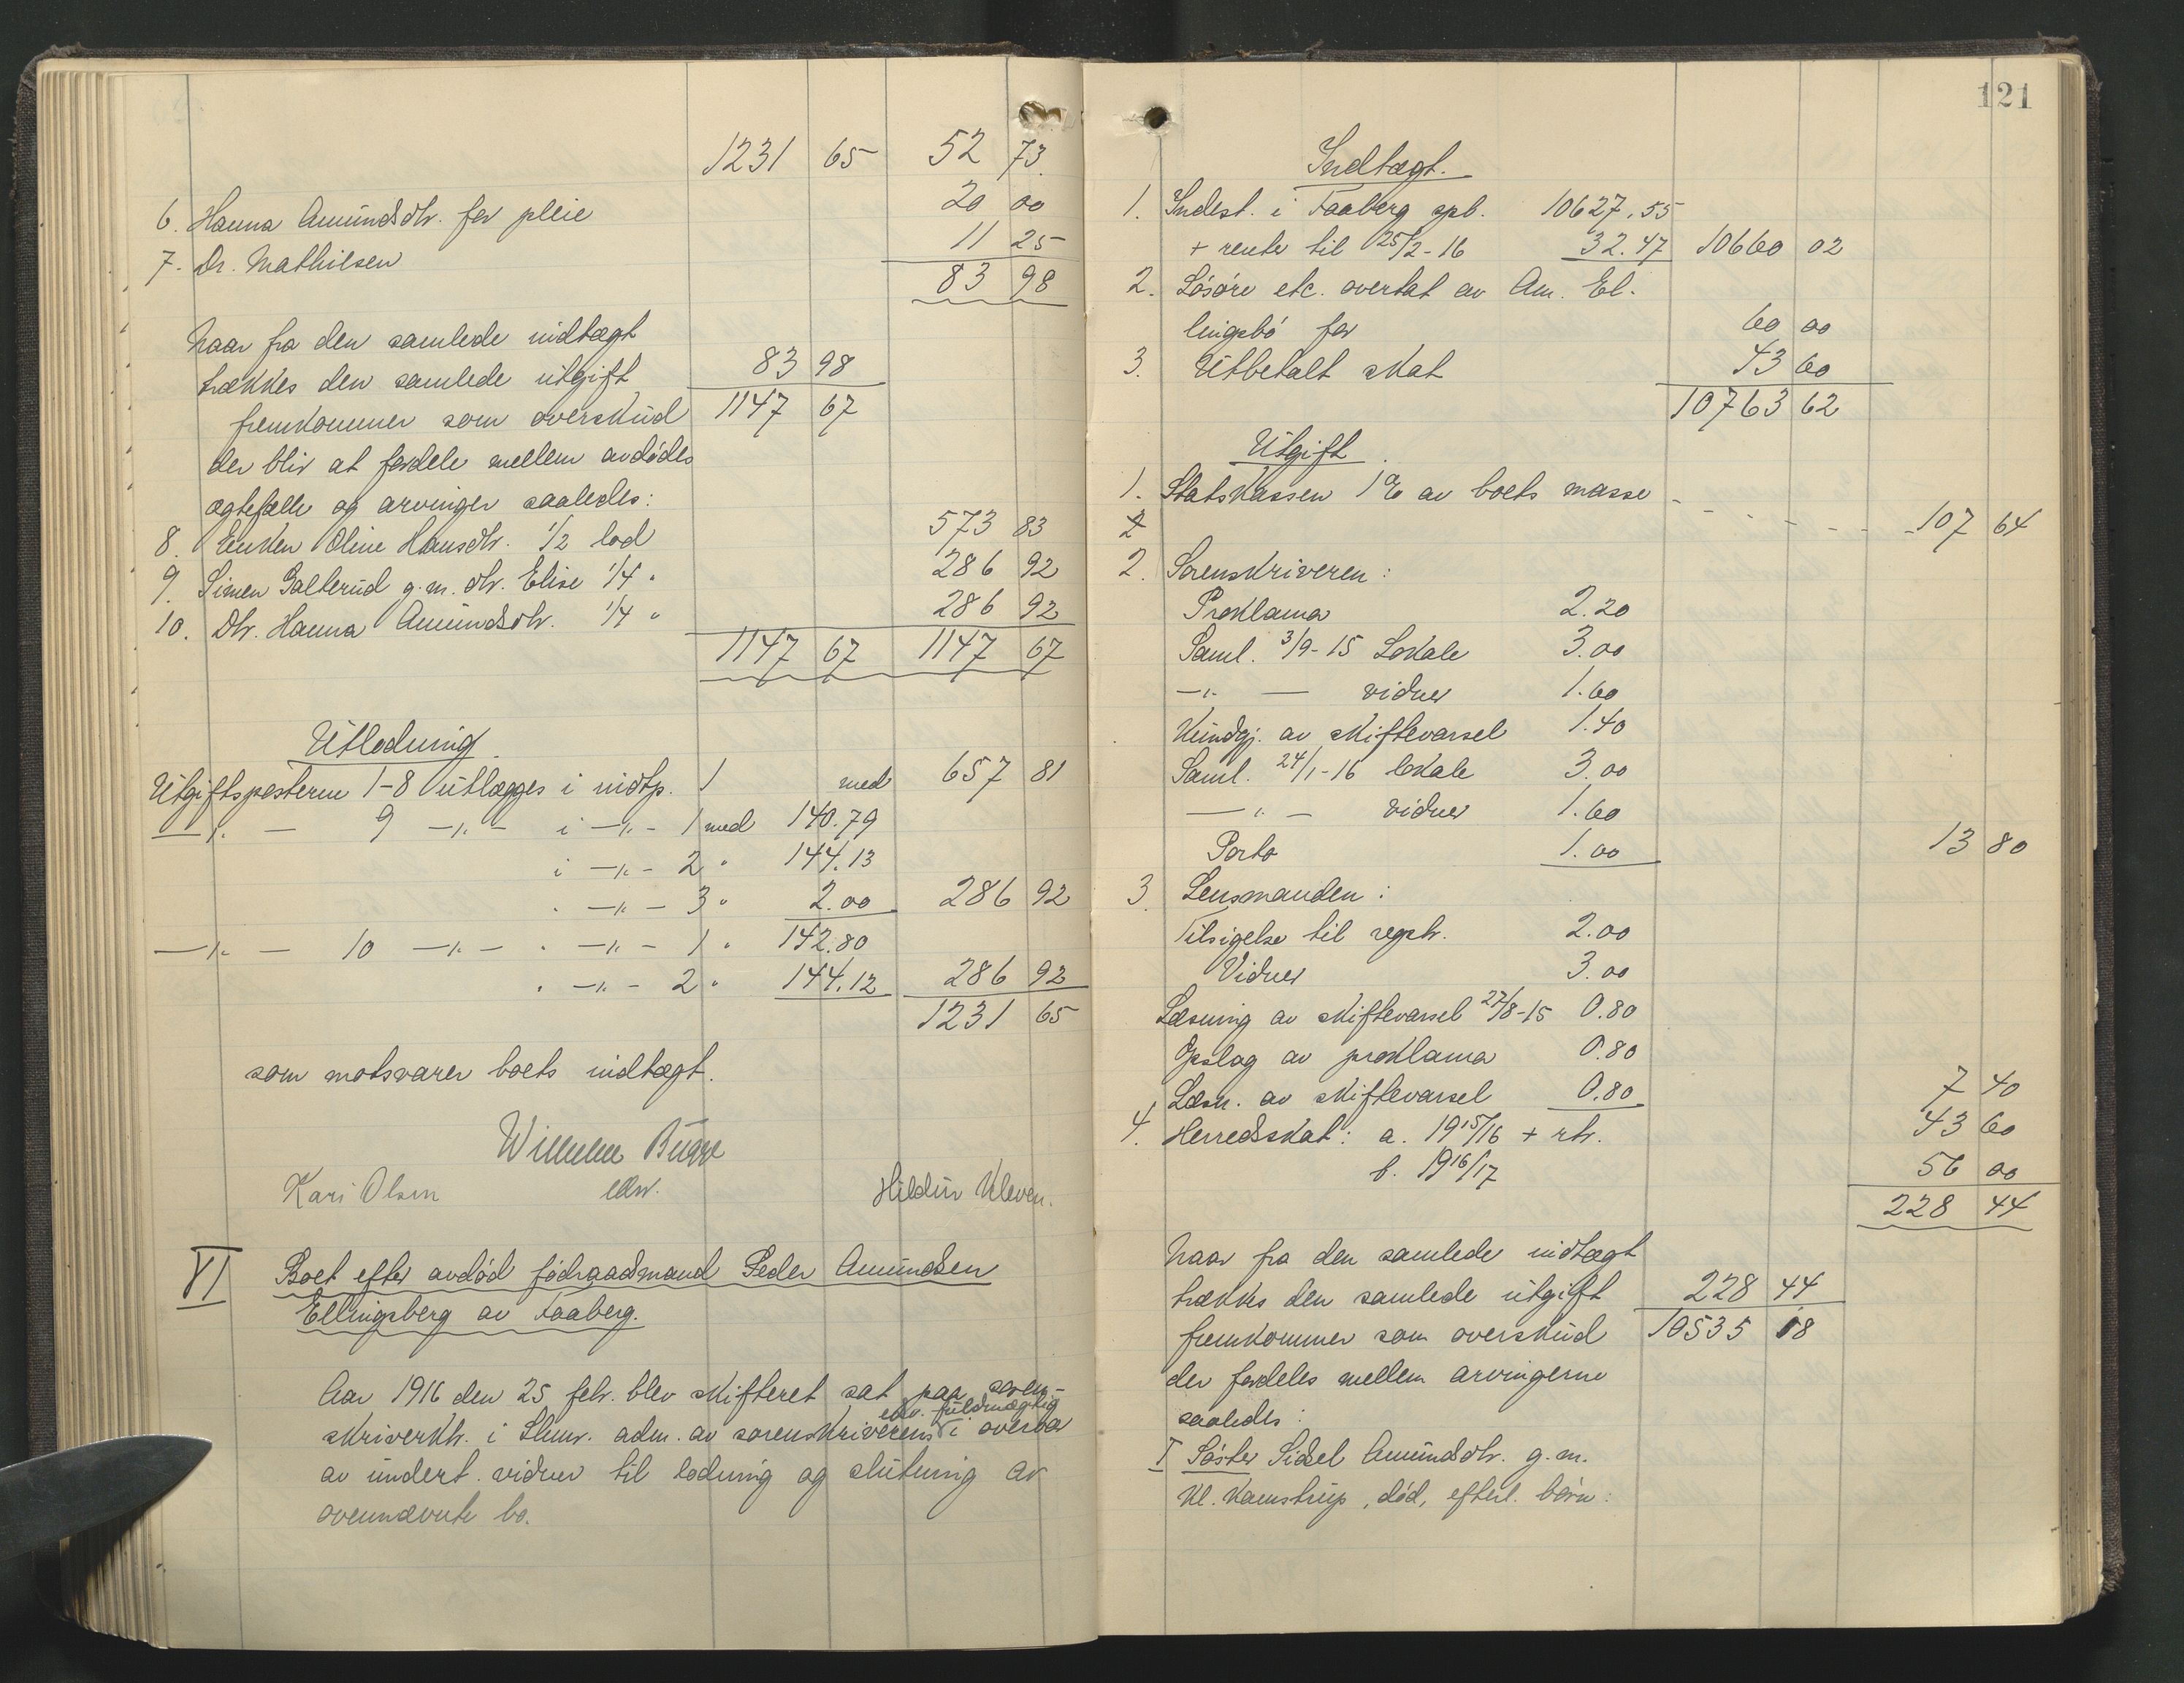 1231 65 52 73
6. Hanna Amundsdtr. for pleie 20 00
7. Dr. Mathiesen 11 25
83 98
Naar fra den samlede indtægt
trækkes den samlede utgift 83 98
fremkommer som overskud 1147 67
der blir at fordele mellem avdødes
ægtefælle og arvinger saaledes:
8. Enken Oline Hansdtr. 1/2 lod 573 83
9. Simen Galterud g.m. dtr. Elise 1/4 " 286 92
10. Dtr. Hanna Amundsdtr. 1/4 " 286 92
1147 67 1147 67
Utlodning
Utgiftsposterne 1-8 utlægges i indtp. 1 med 657 81
—"— 9 —"— i —"— 1 med 140.79
i —"— 2 " 144.13
" —"— 3 " 2.00 286 92
—"— 10 —"— " —"— 1 " 142.80
" —"— 2 " 144.12 286 92
1231 65
som motsvarer boets indtægt.
Wilhelm Bugge
edsv.
Kari Olsen Hildur Kleven.
VI Boet efter avdød fødraadsmand Peder Amundsen
Ellingsberg av Faaberg.
Aar 1916 den 25 febr. blev skifteret sat paa soren-
edsv. fuldmægtig
skriverktr. i Lhmr. adm. av sorenskriverens i overvær
av undert. vidner til lodning og slutning av
ovennævnte bo.
121
Indtægt.
1. Indest. i Faaberg spb. 10627.55
+ renter til 25/2-16 32.47 10660 02
2. Løsøre etc. overtat av Am. El-
lingsbø for 60 00
3. Utbetalt skat 43 60
10763 62
Utgift.
1. Statskassen 1% av boets masse - - - - - - 107 64
2
2. Sorenskriveren:
Proklama 2.20
Saml. 3/9-15 Lokale 3.00
—"— — vidner 1.60
Kundgj. av skiftevarsel 1.40
Saml. 24/1-16 lokale 3.00
—"— vidner 1.60
Porto 1.00 13 80
3. Lensmanden:
Tilsigelse til regstr. 2.00
Vidner 3.00
Læsning av skiftevarsel 27/8-15 0.80
Opslag av proklama 0.80
Læsn. av skiftevarsel 0.80 7 40
4. Herredsskat: a. 1915/16 + rtr. 43 60
b. 1916/17 56 00
228 44
Naar fra den samlede indtægt
trækkes den samlede utgift 228 44
fremkommer som overskud 10535 18
der fordeles mellem arvingerne
saaledes:
I Søster Sidsel Amundsdtr. g.m.
Kl. Kamstrup, død, efterl. børn: